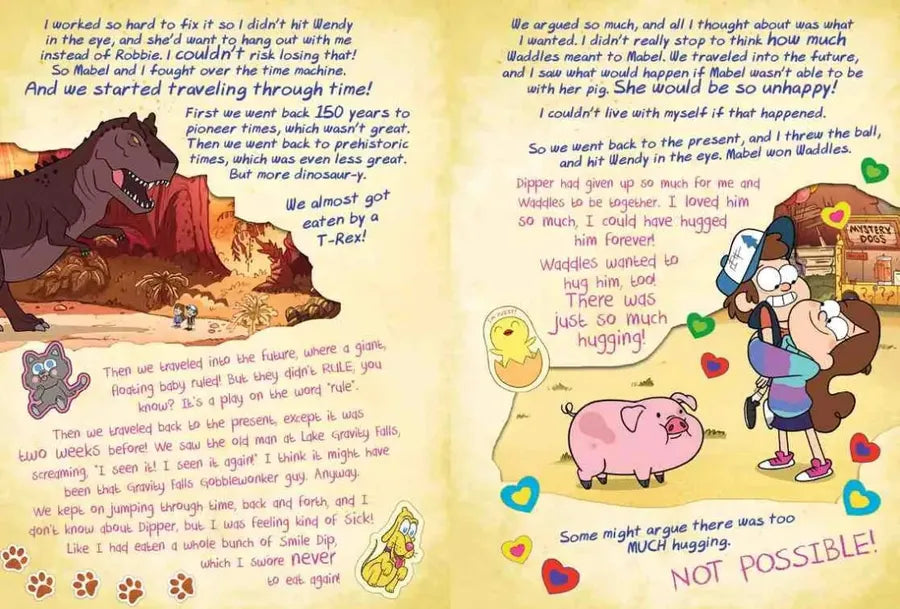 I worked so hard to fix it so I didn't hit Wendy
in the eye, and she'd want to hang out with me
instead of Robbie. I couldn't risk losing that!
So Mabel and I fought over the time machine.
And we started traveling through time!
First we went back 150 years to
pioneer times, which wasn't great.
Then we went back to prehistoric
times, which was even less great.
But more dinosaur-y.
We almost got
eaten by a
T-Rex!
Then we traveled into the future, where a giant,
floating baby ruled! But they didn't RULE, you
know? It's a play on the word "rule".
Then we traveled back to the present, except it was
two weeks before! We saw the old man at Lake Gravity Falls,
screaming, "I seen it! I seen it again!" I think it might have
been that Gravity Falls Gobblewonker guy. Anyway.
We kept on jumping through time, back and forth, and I
don't know about Dipper, but I was feeling kind of Sick!
Like I had eaten a whole bunch of Smile Dip,
which I swore never
to eat again!
We argued so much, and all I thought about was what
I wanted. I didn't really stop to think how much
Waddles meant to Mabel. We traveled into the future,
and I saw what would happen if Mabel wasn't able to be
with her pig. She would be so unhappy!
I couldn't live with myself if that happened.
So we went back to the present, and I threw the ball,
and hit Wendy in the eye. Mabel won Waddles.
Dipper had given up so much for me and
Waddles to be together. I loved him
so much, I could have hugged
him forever!
Waddles wanted to
hug him, too!
There was
just so much
hugging!
MYSTERY
DOGS
Some might argue there was too
MUCH hugging.
NOT POSSIBLE!